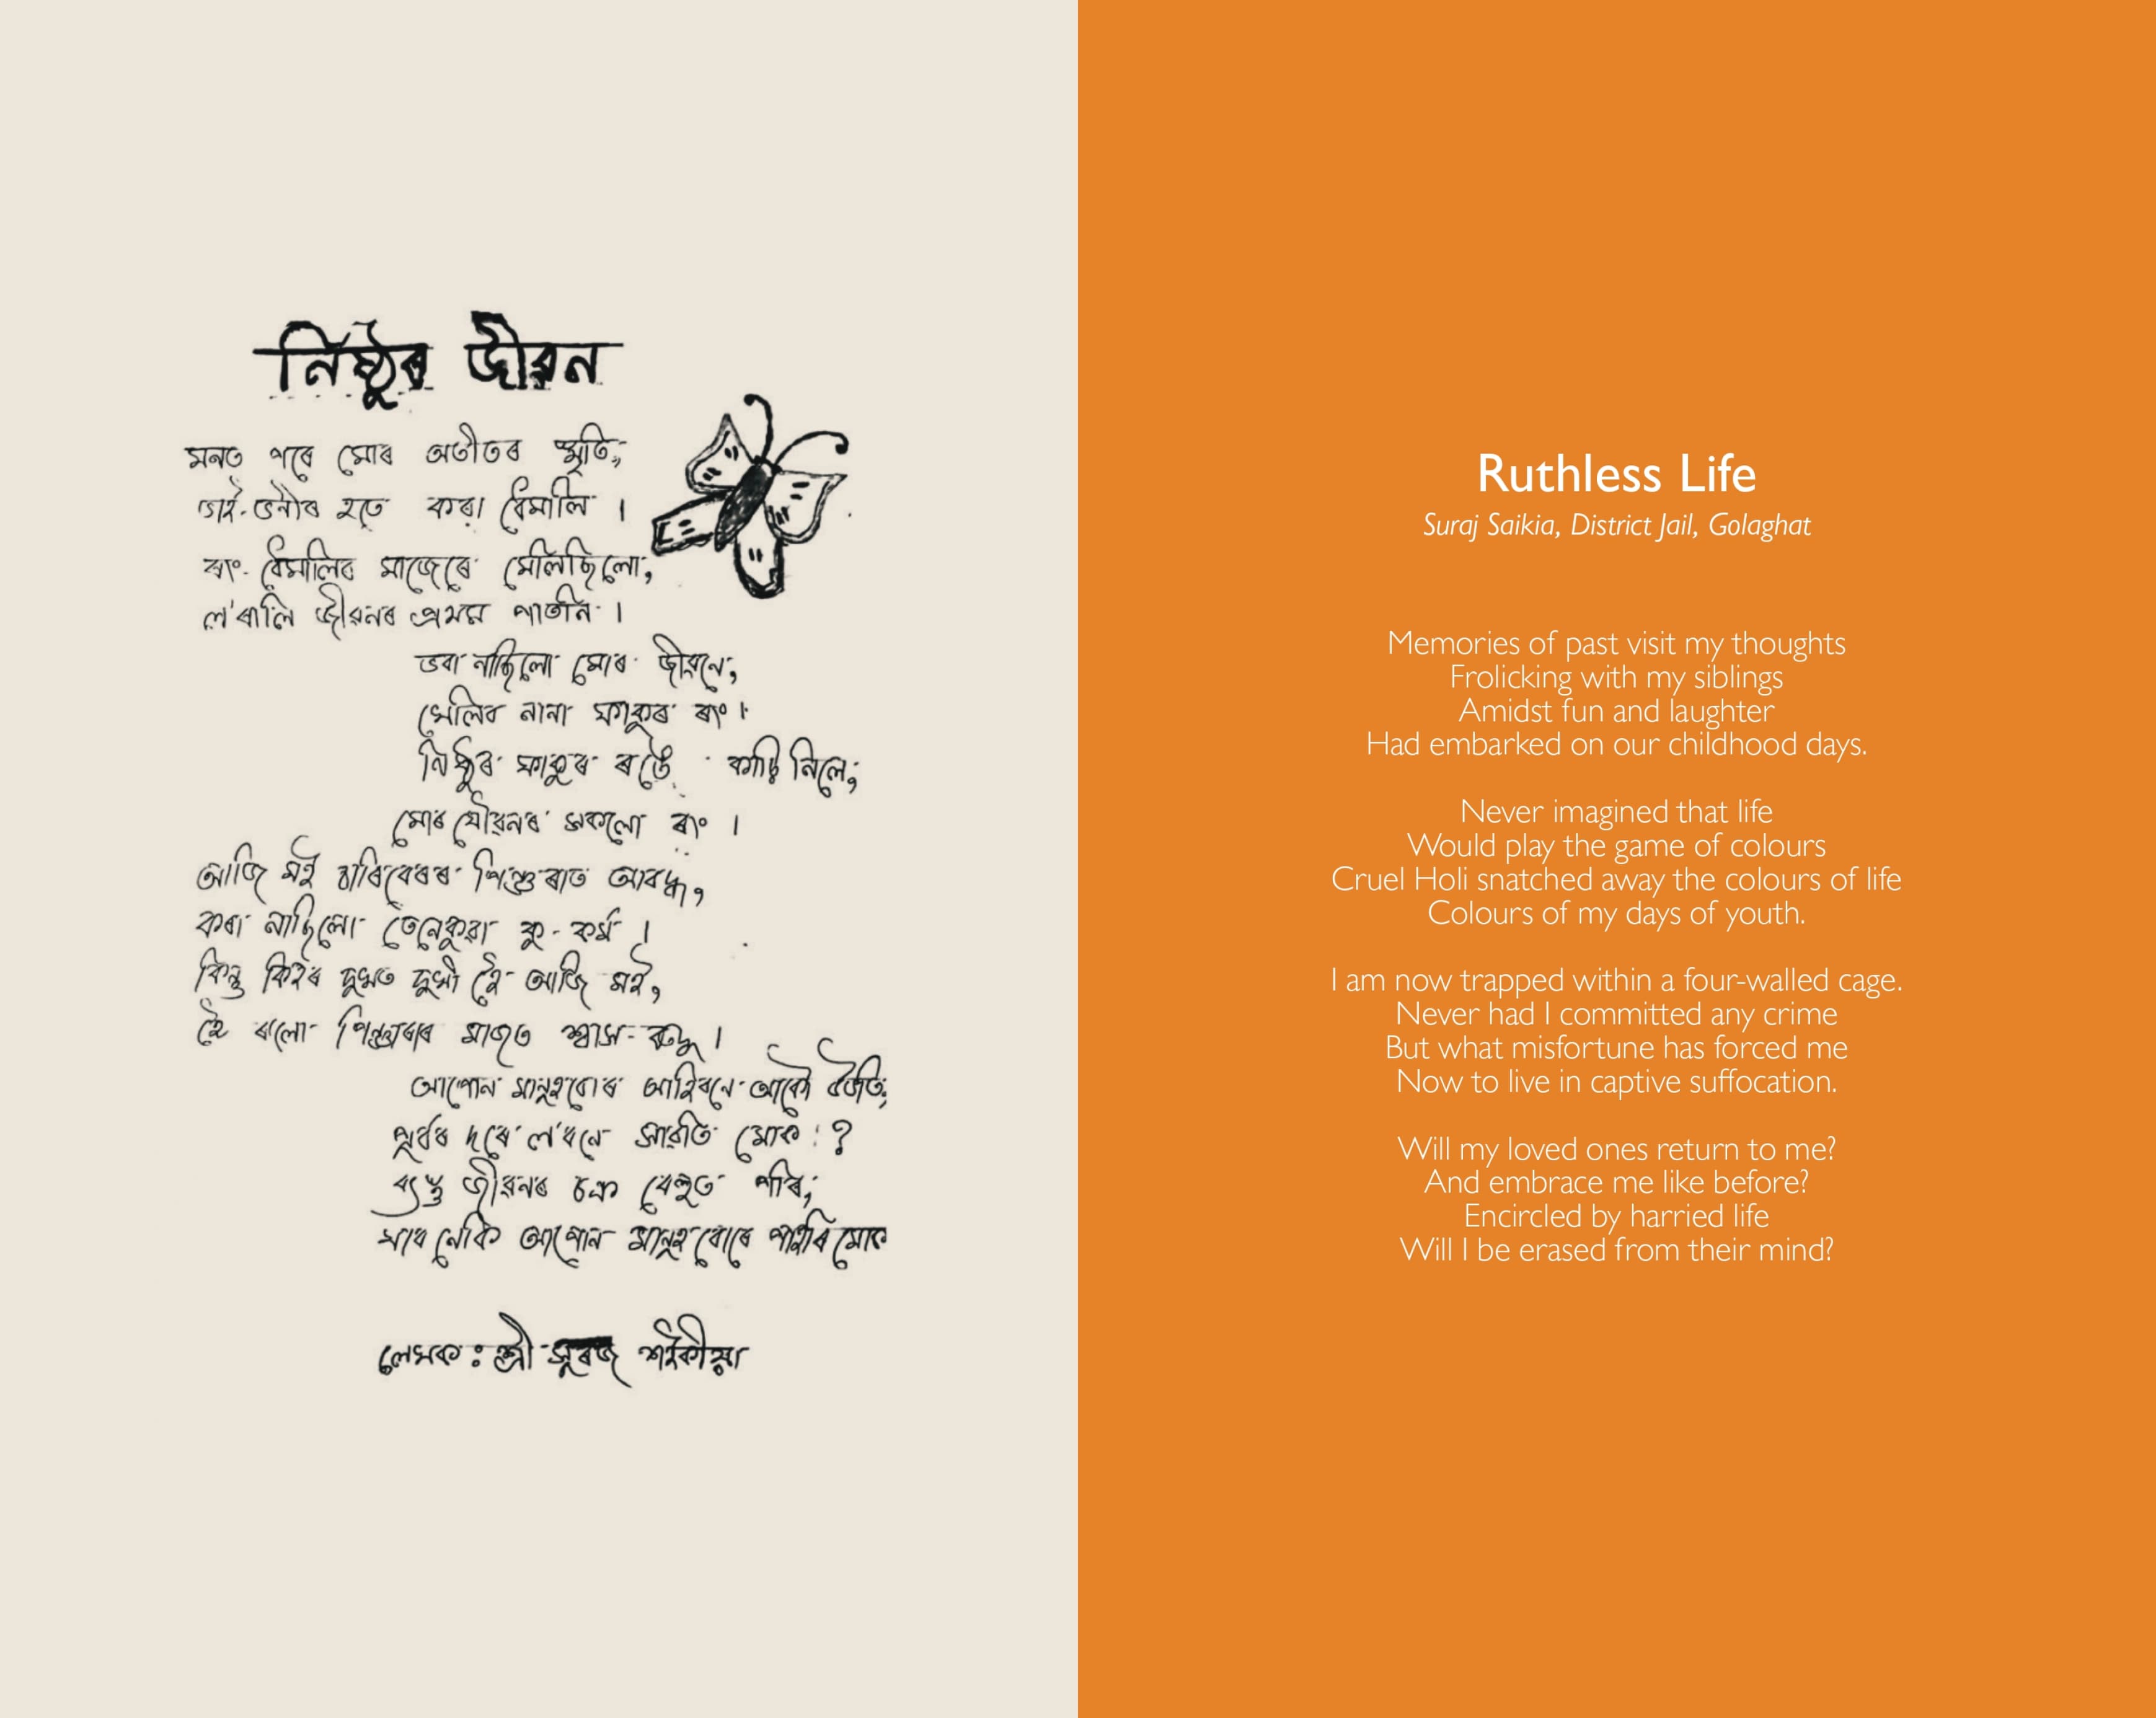 নিষ্ঠুৰ জীৱন
মনত পৰে মোৰ অতীতৰ স্মৃতি,
ভাই-ভনীৰ হতে কৰা ধেমালি ।
ৰং-ধেমালিৰ মাজেৰে মেলিছিলো,
ল'ৰালি জীৱনৰ প্ৰথম পাতনি ।
ভবা নাছিলো মোৰ জীৱনে,
খেলিব নানা ফাকুৰ ৰং ।
নিষ্ঠুৰ ফাকুৰ ৰঙে কাঢ়ি নিলে,
মোৰ যৌৱনৰ সকলো ৰং ।
আজি মই চাৰিবেৰৰ পিঞ্জৰাত আবদ্ধ,
কৰা নাছিলো তেনেকুৱা কু-কৰ্ম ।
কিন্তু কিহৰ দুখত দুখী হৈ আজি মই,
হৈ ৰলো পিঞ্জৰাৰ মাজত শ্বাস-ৰুদ্ধ ।
আপোন মানুহবোৰ আহিবনে আকৌ উভতি,
পূৰ্বৰ দৰে ল'বনে সাৱটি মোক ?
ব্যস্ত জীৱনৰ চক্ৰ বেহুত পৰি,
যাব নেকি আপোন মানুহবোৰে পাহৰি মোক
লেখক : শ্ৰী সুৰজ শইকীয়া
Ruthless Life
Suraj Saikia, District Jail, Golaghat
Memories of past visit my thoughts
Frolicking with my siblings
Amidst fun and laughter
Had embarked on our childhood days.
Never imagined that life
Would play the game of colours
Cruel Holi snatched away the colours of life
Colours of my days of youth.
I am now trapped within a four-walled cage.
Never had I committed any crime
But what misfortune has forced me
Now to live in captive suffocation.
Will my loved ones return to me?
And embrace me like before?
Encircled by harried life
Will I be erased from their mind?